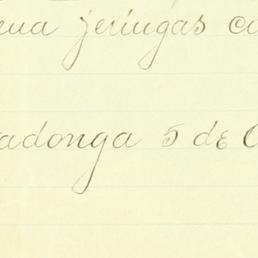 jeringas
adonga 5 de